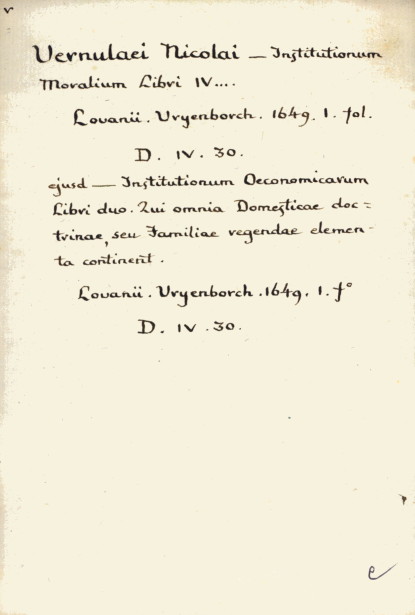 v
Vernulaei Nicolai — Institutionum
Moralium Libri IV....
Lovanii. Vryenborch. 1649. 1. fol.
D. IV. 30.
ejusd — Institutionum Oeconomicarum
Libri duo. Qui omnia Domesticae doc=
trinae, seu Familiae regendae elemen-
ta continent.
Lovanii. Vryenborch. 1649. 1. f°
D. IV. 30.
e